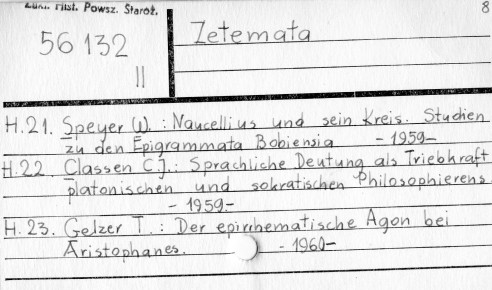 Zakł. Hist. Powsz. Staroż.
8
56 132
II
Zetemata
H.21. Speyer W. : Naucellius und sein Kreis. Studien
zu den Epigrammata Bobiensia -1959-
H.22. Classen C.J. : Sprachliche Deutung als Triebkraft
platonischen und sokratischen Philosophierens
-1959-
H.23. Gelzer T. : Der epirrhematische Agon bei
Aristophanes. -1960-